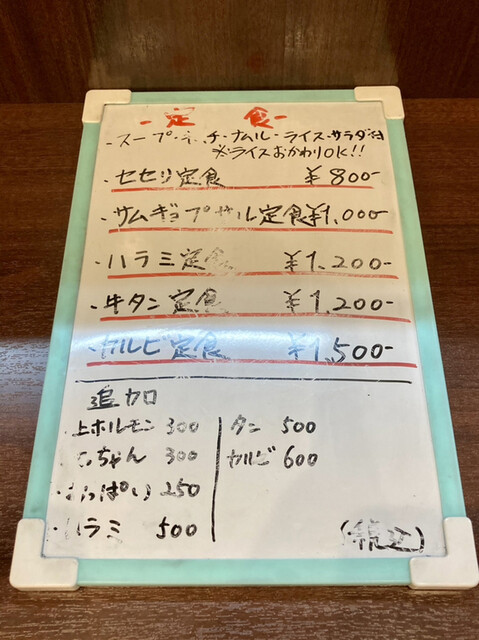 -定 食-
・スープ・キムチ・ナムル・ライス・サラダ付
※ライスおかわりOK!!
・セセリ定食 ¥800-
・サムギョプサル定食 ¥1,000-
・ハラミ定食 ¥1,200-
・牛タン定食 ¥1,200-
・カルビ定食 ¥1,500-
追加
・上ホルモン 300
ちゃん 300
・おっぱい 250
・ハラミ 500
・タン 500
・カルビ 600
(税込)